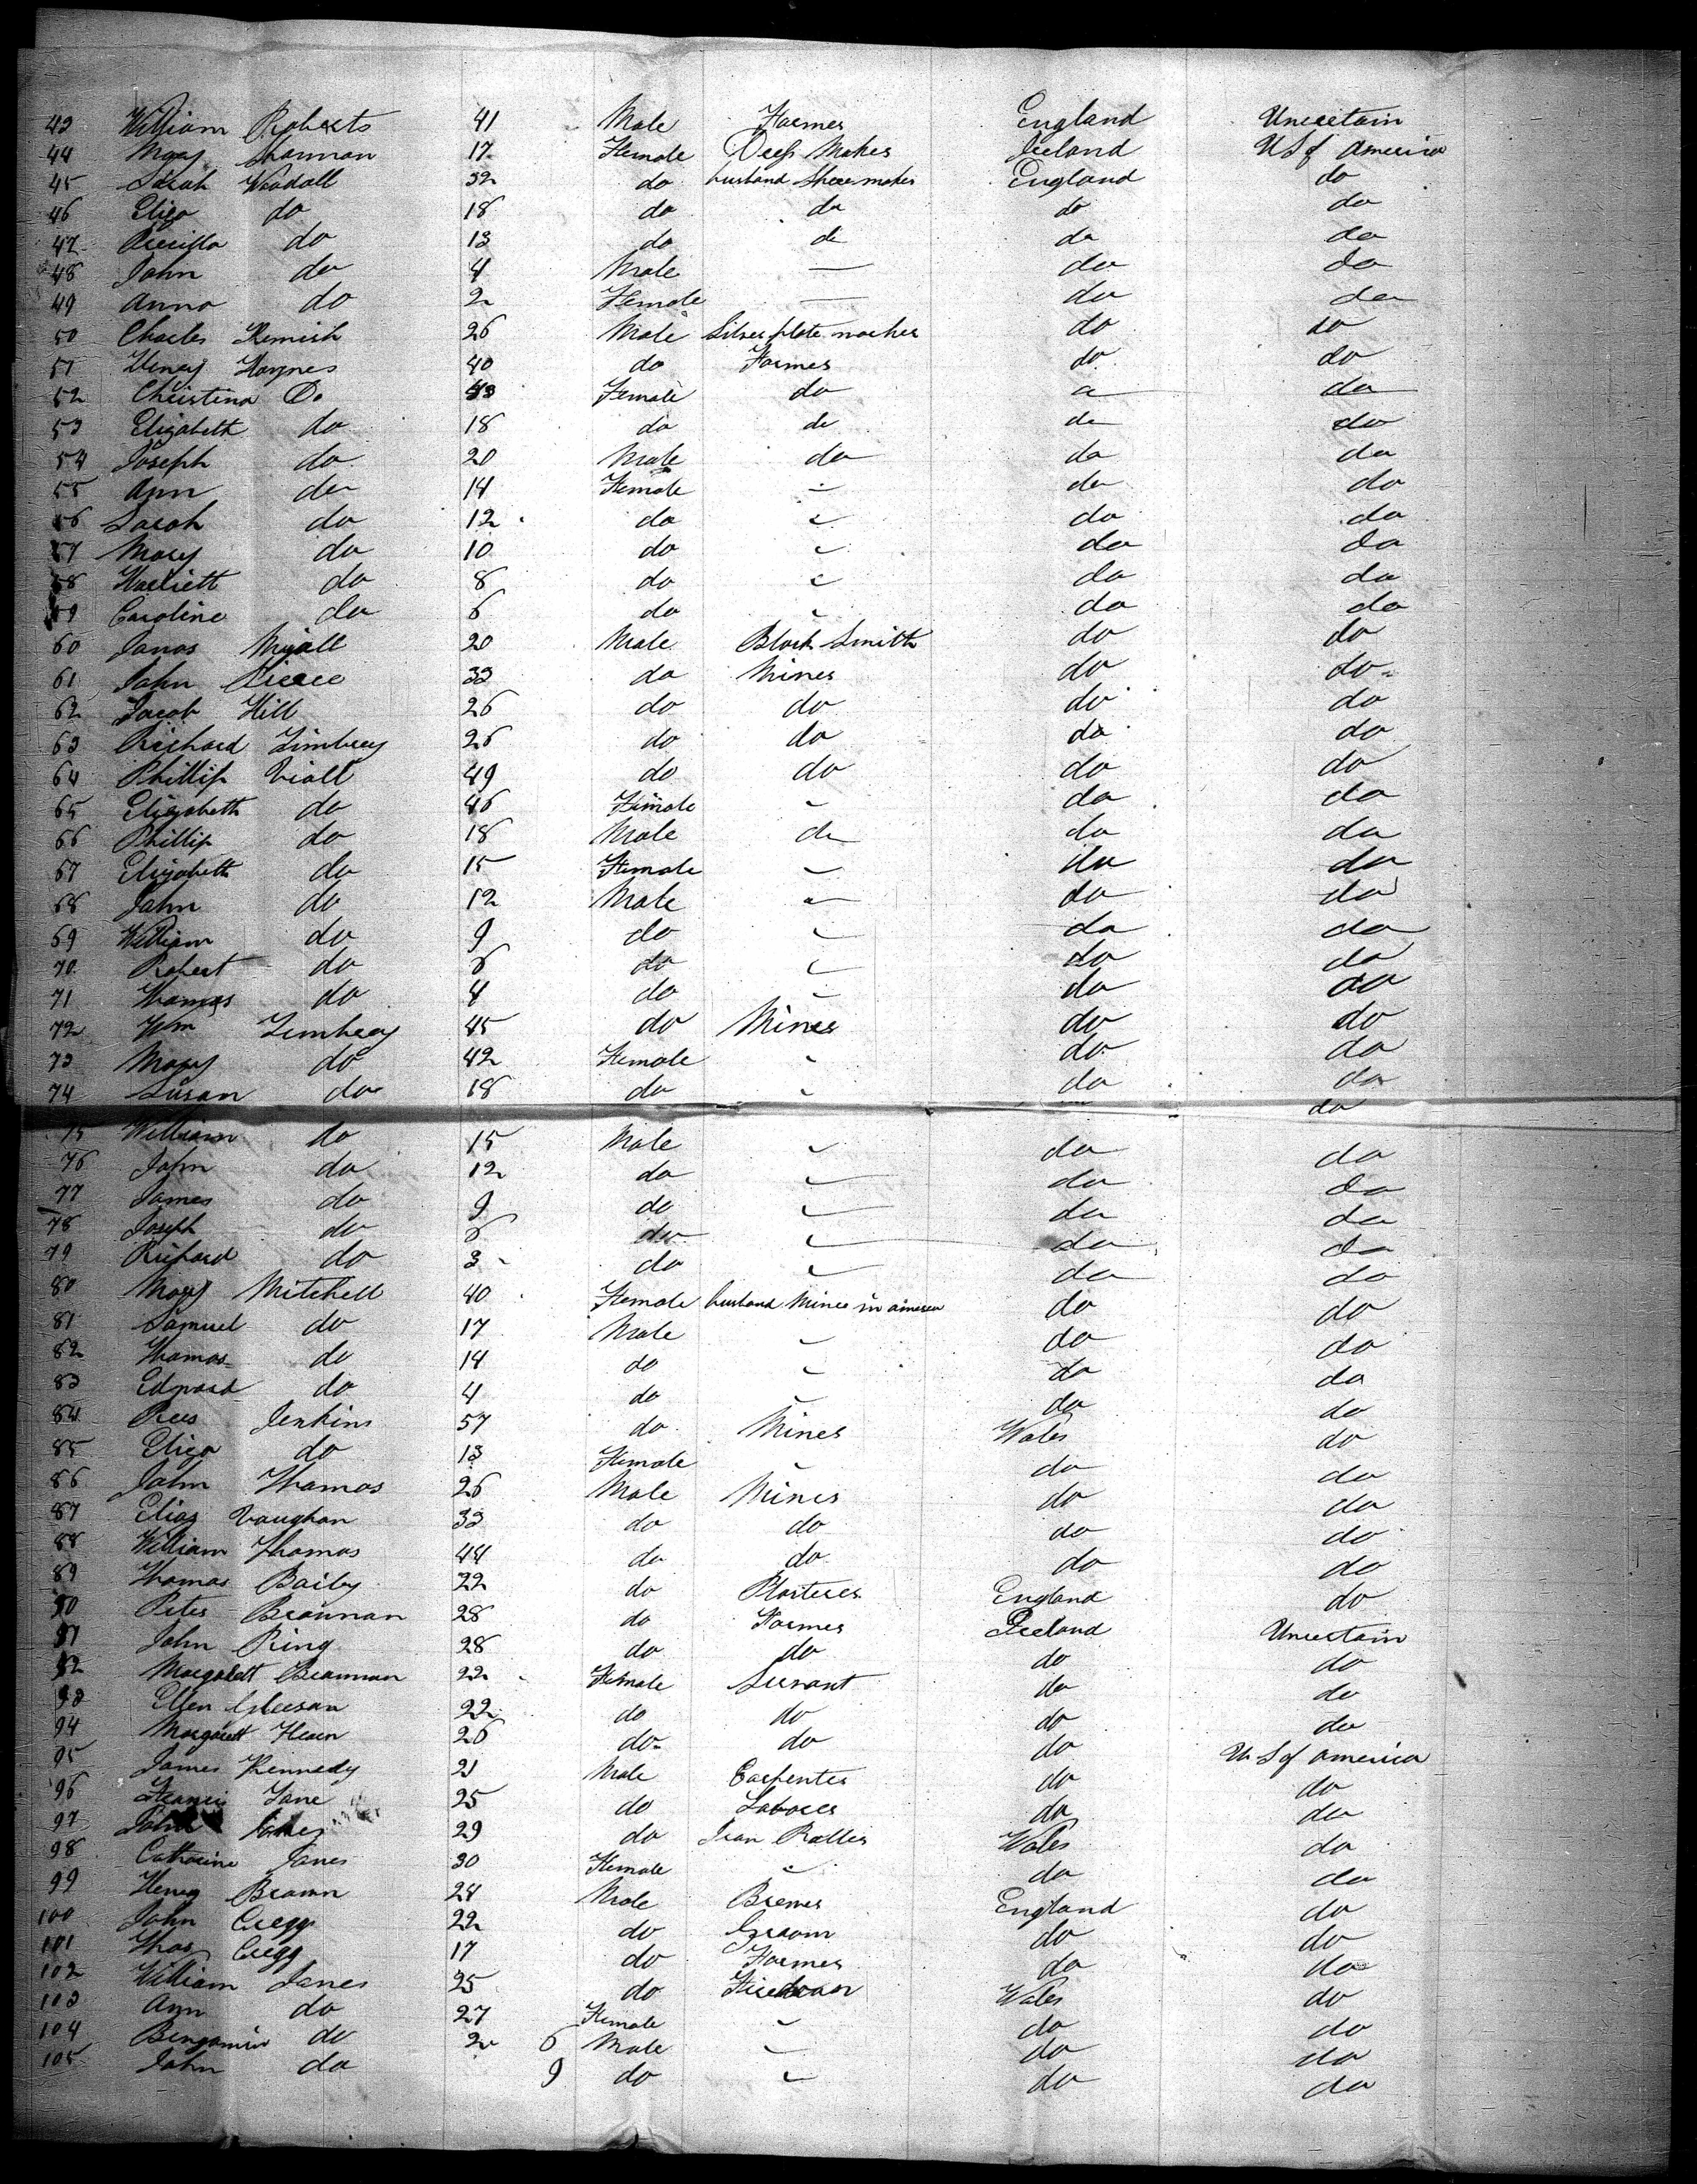 43 William Roberts 41 Male Farmer England Uncertain
44 Mary Sharman 17 Female Dress Maker Ireland U S of America
45 Sarah Woodall 32 do husband Shoemaker England do
46 Eliza do 18 do do do do
47 Precilla do 13 do do do do
48 John do 4 Male — do do
49 Anna do 2 Female — do do
50 Charles Kemish 26 Male Silver plate worker do do
51 Henry Haynes 40 do Farmer do do
52 Christina Do 43 Female do do
53 Elizabeth do 18 do do do do
54 Joseph do 20 Male do do do
55 Ann do 14 Female - do do
56 Sarah do 12 do - do do
57 Mary do 10 do - do do
58 Harriett do 8 do - do do
59 Caroline do 6 do - do do
60 Myall 20 Male Black Smith do do
61 John Pierce 33 do Miner do do
62 Jacob Hill 26 do do do do
63 Richard Limbrey 26 do do do do
64 Phillip Viall 49 do do do do
65 Elizabeth do 46 Female - do do
66 Phillip do 18 Male do do do
67 Elizabeth do 15 Female - do do
68 John do 12 Male - do do
69 William do 9 do - do do
70 Robert do 6 do - do do
71 Thomas do 4 do - do do
72 Wm Limbrey 45 do Miner do do
73 Mary do 42 Female - do do
74 Susan do 18 do - do do
do
75 William do 15 Male - do do
76 John do 12 do - do do
77 James do 9 do - do do
78 Joseph do 6 do - do do
79 Richard do 3 do - do do
80 Mary Mitchell 40 Female husband Miner in america do do
81 Samuel do 17 Male - do do
82 Thomas do 14 do - do do
83 Edward do 4 do - do do
84 Rees Jenkins 57 do Miner Wales do
85 Eliza do 13 Female - do do
86 John Thomas 26 Male Miner do do
87 Elias Vaughan 33 do do do do
88 William Thomas 44 do do do do
89 Thomas Baily 22 do Plasterer England do
90 Peter Brannan 28 do Farmer Ireland Uncertain
91 John Ring 28 do do do do
92 Margarett Brannan 22 Female Servant do do
93 Ellen Gleesan 22 do do do do
94 Margarett Hearn 26 do do do U S of America
95 James Kennedy 21 Male Carpenter do do
96 Francis Lane 25 do Laborer do do
97 John 29 do Iron Roller Wales do
98 Catharine Janes 30 Female - do do
99 Henry Brown 24 Male Brewer England do
100 John Gregg 22 do Groom do do
101 Thos Gregg 17 do Farmer do do
102 William Janes 25 do Fireman Wales do
103 Ann do 27 Female - do do
104 Bengamin do 2 6 Male - do do
105 John do 9 do - do do